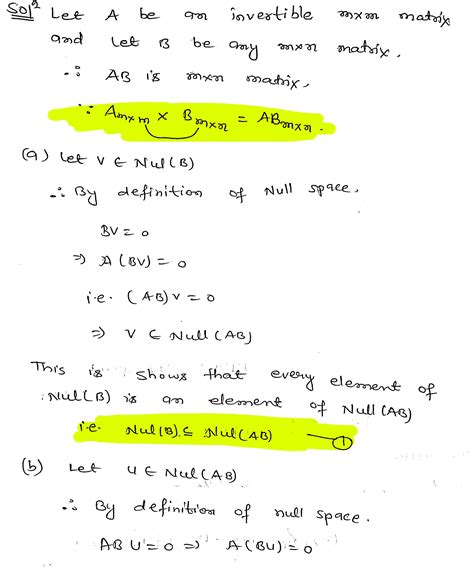 Solⁿ Let A be an invertible mxm matrix
and let B be any mxn matrix.
∴ AB is mxn matrix,
∵ Amxm × Bmxn = ABmxn.
(a) Let V ∈ Nul(B)
∴ By definition of Null space,
BV = 0
⇒ A(BV) = 0
i.e. (AB)V = 0
⇒ V ∈ Null(AB)
This is shows that every element of
Nul(B) is an element of Null(AB)
i.e. Nul(B) ⊆ Nul(AB) — ①
(b) Let U ∈ Nul(AB)
∴ By definition of null space.
AB U = 0 ⇒ A(BU) = 0